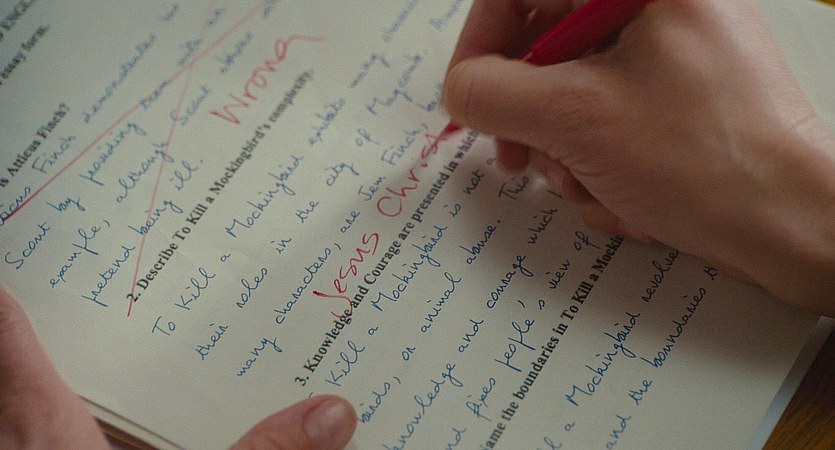 ENGL
essay form.
is Atticus Finch?
Finch demonstrates
Scout by providing
example, although Scout
pretend being ill.
Wrong
2. Describe To Kill a Mockingbird's complexity.
To Kill a Mockingbird exhibits many
their roles in the city of Maycomb.
many characters, are Jem Finch,
Jesus Christ
3. Knowledge and Courage are presented in which
Kill a Mockingbird is not a
birds, or animal abuse. This
knowledge and courage which
and fixes people's view of
ame the boundaries in To Kill a Mocking
a Mockingbird revolve
and the boundaries